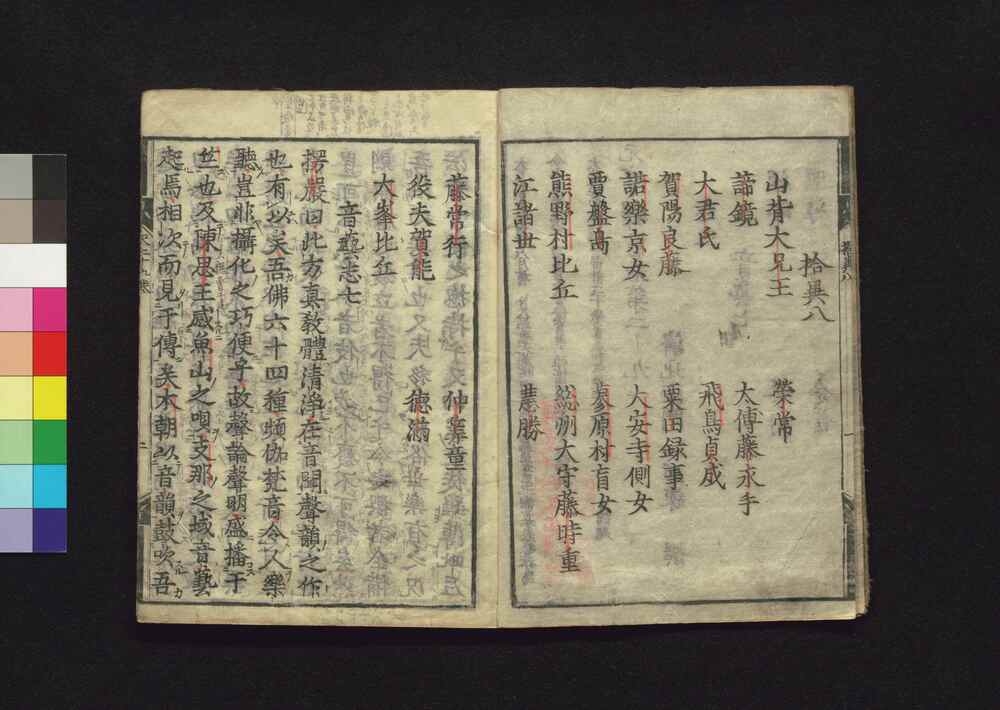 拾異八
山背大兄王　榮常
諦鏡　太傅藤永手
大君氏　飛鳥貞成
賀陽良藤　粟田録事
諾樂京女　大安寺側女
賈盤島　蓼原村盲女
熊野村比丘　総州大守藤時重
江諸世　慧勝
藤常行　仲算童
役夫賀能　德滿
大峯比丘
音藝志七
楞嚴曰此方真敎體清淨在音聞聲韻之作
也有以矣吾佛六十四種頻伽梵音令人樂
聽豈非攝化之巧便乎故聲論聲明盛播于
竺也及陳思王感魚山之唄支那之域音藝
起焉相次而見于傳矣本朝以音韻鼓吹吾